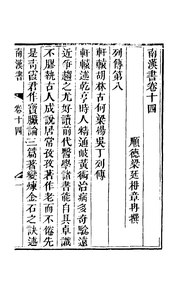 南漢書卷十四
順德梁廷枏章冉撰
列傳第八
軒轅胡林古何梁楊吳丁列傳
軒轅述乾亨時人精通岐黃術治病多奇驗遠
近爭趨之尤好讀前代醫學諸書能自具卓識
不膠執古人成說居常孜孜著作老而不倦先
是青霞君作寶藏論三篇著變煉金石之訣述
南漢書
卷十四